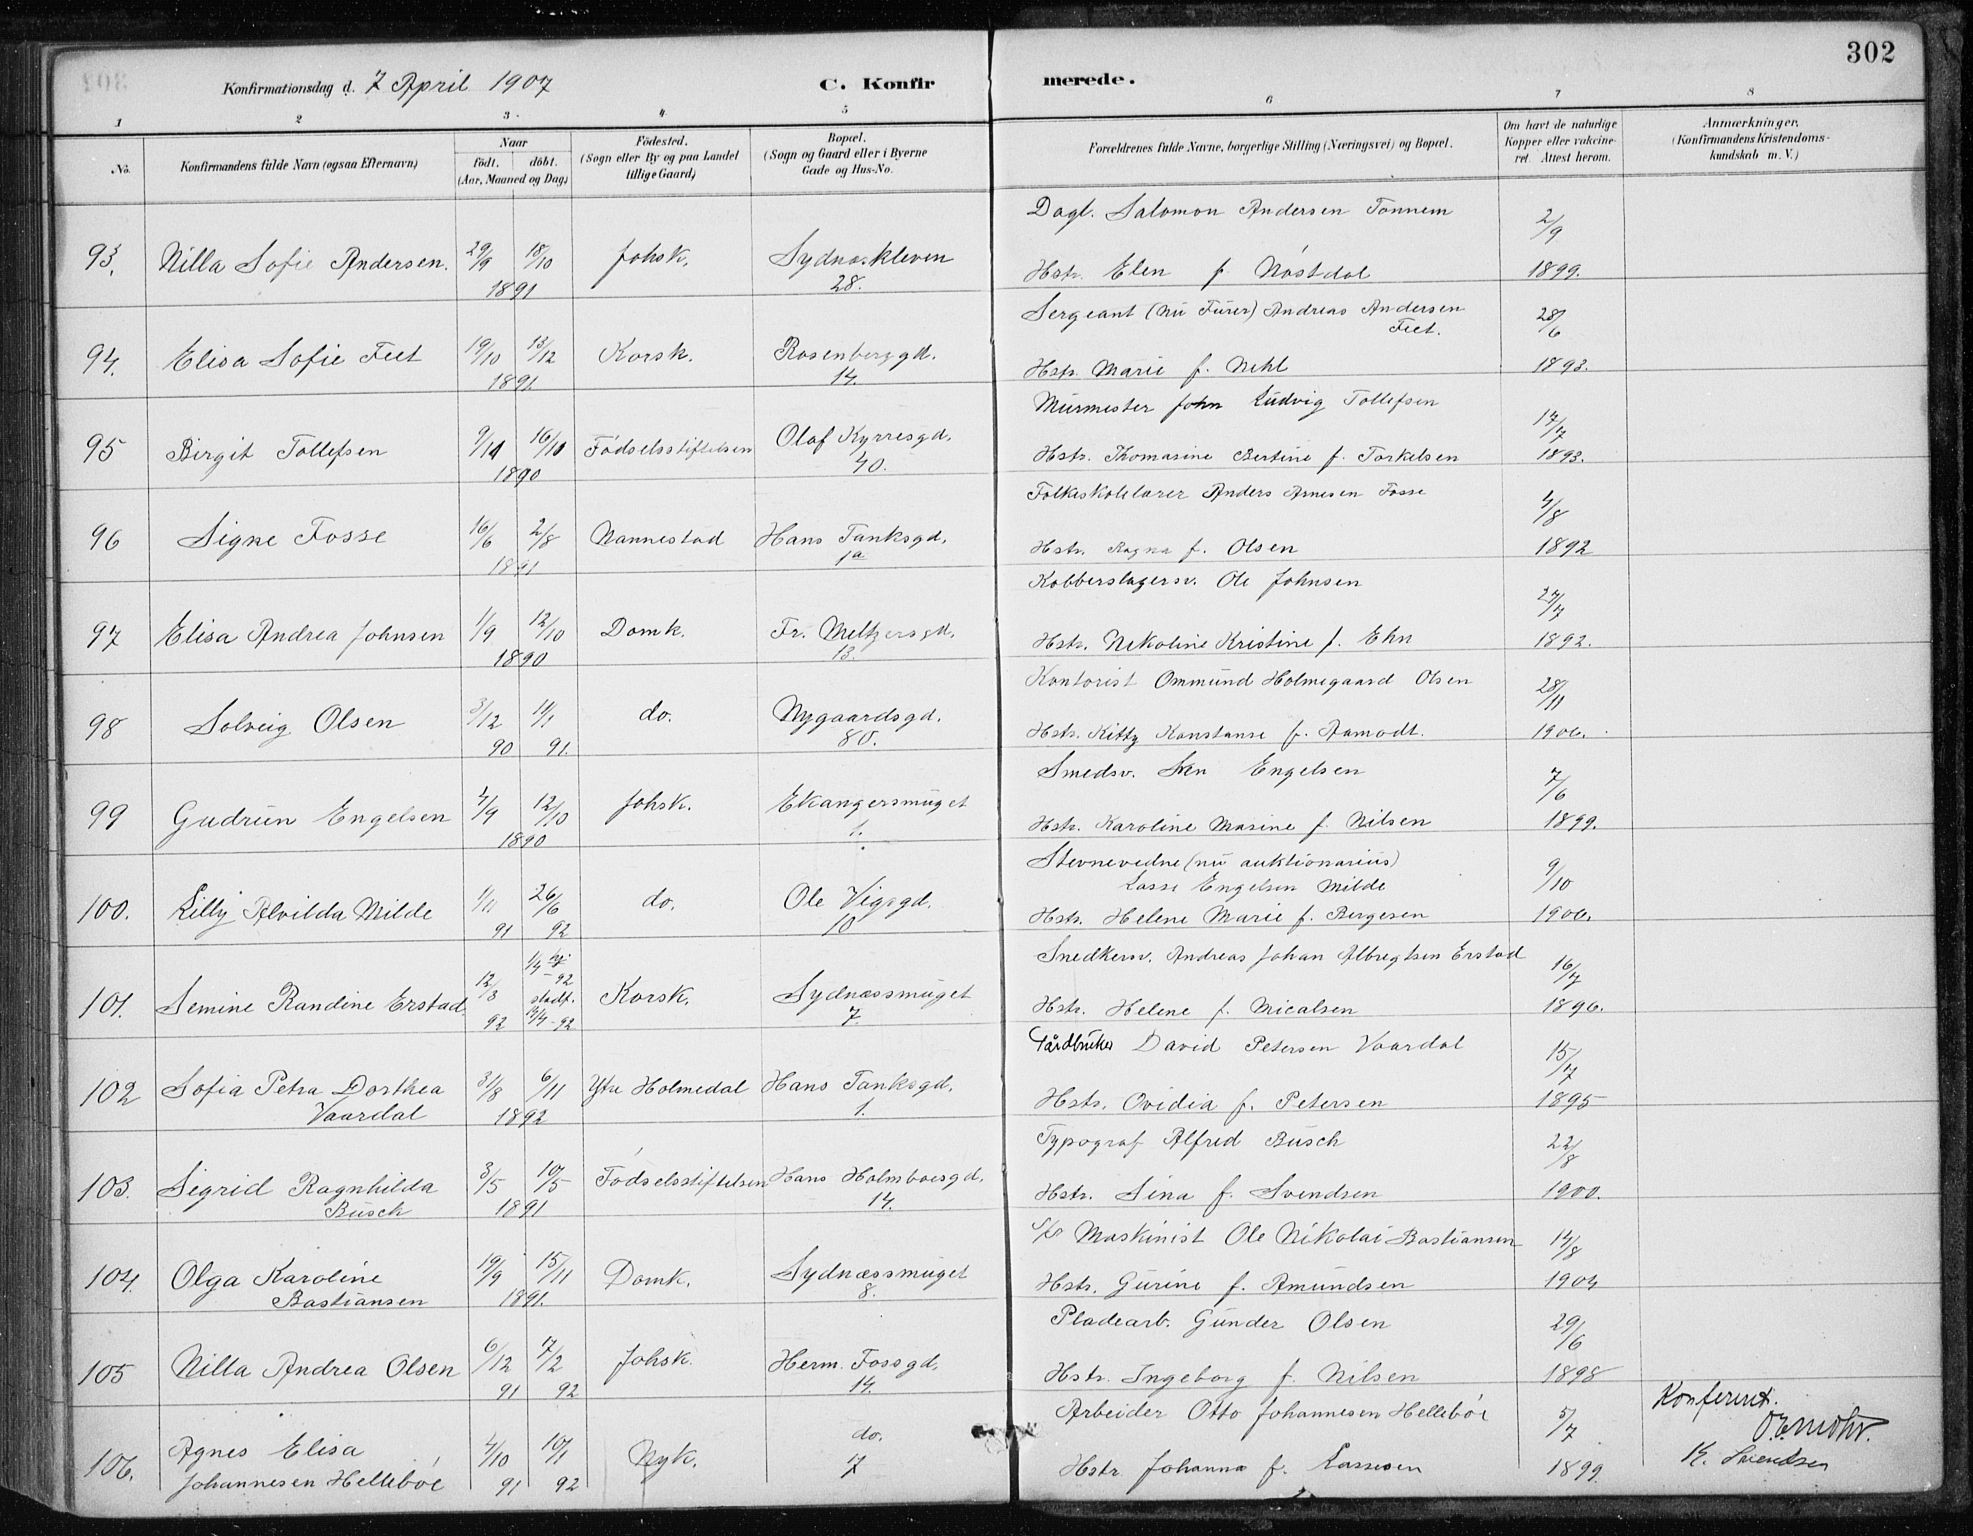 302
Konfirmationsdag d. 7 April 1907
C. Konfirmerede.
1 2 3 4 5 6 7 8
No.
Konfirmandens fulde Navn (ogsaa Efternavn)
Naar
födt. döbt.
(Aar, Maaned og Dag)
Födested.
(Sogn eller By og paa Landet
tillige Gaard)
Bopæl.
(Sogn og Gaard eller i Byerne
Gade og Hus-No.
Forældrenes fulde Navne, borgerlige Stilling (Næringsvei) og Bopæl.
Om havt de naturlige
Kopper eller vakcine-
ret. Attest herom.
Anmærkninger.
(Konfirmandens Kristendoms-
kundskab m. V.)
93. Nilla Sofie Andersen. 29/9 18/10 1891 Johsk. Sydneskleven 28.
Dagl. Salomon Andersen Tonnem
Hstr. Elen f. Nøstdal
2/9 1899.
94. Elisa Sofie Feet 19/10 13/12 1891. Korsk. Rosenberggd. 14.
Sergeant (nu Furer) Andreas Andersen
Feet.
Hstr. Marie f. Nehl
28/6 1893.
95 Birgit Tollefsen 9/11 16/10 1890 Fødselsstiftelsen Olaf Kyrresgd. 40.
Murmester John Ludvig Tollefsen
Hstr. Thomasine Bertine f. Torkelsen
17/7 1893.
96 Signe Fosse 16/6 2/8 1891 Nannestad Hans Tanksgd. 1a
Folkeskolelærer Anders Arnesen Fosse
Hstr. Ragna f. Olsen
4/8 1892
97 Elisa Andrea Johnsen 1/9 12/10 1890 Domk. Fr. Meltzersgd. 13.
Kobberslagersv. Ole Johnsen
Hstr. Nikoline Kristine f. Ehn
27/7 1892.
98 Solveig Olsen 3/12 90 11/1 91. do. Nygaardsgd. 80.
Kontorist Ommund Holmegaard Olsen
Hstr. Kitty Konstanse f. Aamodt.
28/11 1906.
99 Gudrun Engelsen 4/9 12/10 1890 Johsk. Ekangersmuget 1.
Smedsv. Engelsen
Hstr. Karoline Masine f. Nilsen
7/6 1899.
100. Lilly Alvilda Milde 1/11 91 26/6 92 do. Ole Vigsgd. 10
Stevnevidne (nu auktionarius)
Lasse Engelsen Milde
Hstr. Helene Marie f. Bergesen
9/10 1906.
101. Semine Randine Erstad 12/3 92 1/4 92 stadf. 13/4-92 Korsk. Sydnæssmuget 7.
Snedkersv. Andreas Johan Albregtsen Erstad
Hstr. Helene f. Micalsen
16/7 1896.
102 Sofia Petra Dorthea
Vaardal 31/8 6/11 1892 Ytre Holmedal Hans Tanksgd. 1.
Gårdbruker David Petersen Vaardal
Hstr. Ovidia f. Petersen
15/7 1895
103. Sigrid Ragnhilda
Busch 3/5 10/5 1891 Fødselsstiftelsen Hans Holmboesgd. 14.
Typograf Alfred Busch
Hstr. Sina f. Svendsen
22/8 1900.
104. Olga Karoline
Bastiansen 19/9 15/11 1891. Domk. Sydnæssmuget 8.
Maskinist Ole Nikolai Bastiansen
Hstr. Gurine f. Amundsen
14/8 1904
105 Nilla Andrea Olsen 6/12 91 7/2 92 Johsk. Herm. Fossgd. 14.
Pladearb. Gunder Olsen
Hstr. Ingeborg f. Nilsen
29/6 1898
106. Agnes Elisa
Johannesen Hellebøe 4/10 91 10/1 92 Nyk. do. 7
Arbeider Otto Johannesen Hellebøe
Hstr. Johanna f. Lassesen
5/7 1899.
Konferert.
K. Svendsen